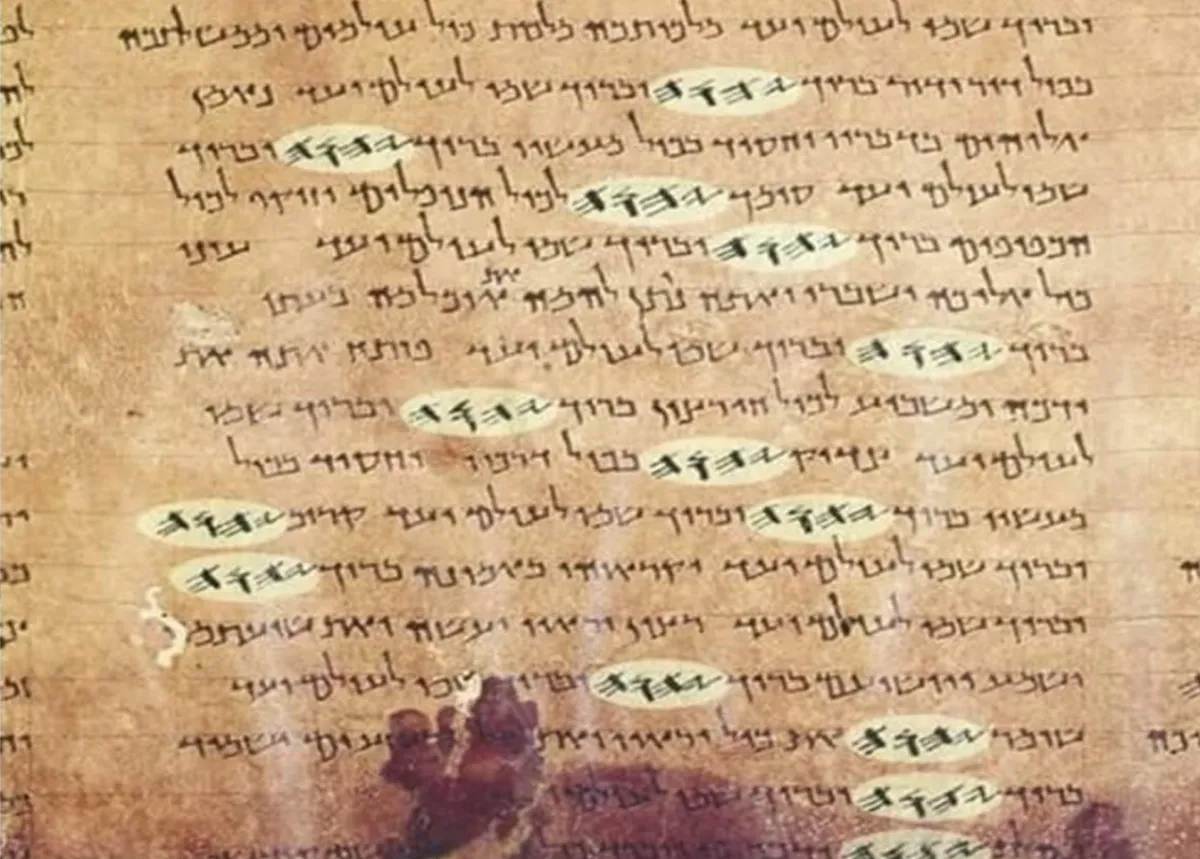 וברוך שמו לעולם ועד מלכותכה מלכות כול עולמים וממשלתכה
בכול דור ודור ברוך 𐤉𐤄𐤅𐤄 וברוך שמו לעולם ועד נאמן
אלוהים בדבריו וחסיד בכול מעשיו ברוך 𐤉𐤄𐤅𐤄 וברוך
שמו לעולם ועד סומך 𐤉𐤄𐤅𐤄 לכול הנופלים וזוקף לכול
הכפופים ברוך 𐤉𐤄𐤅𐤄 וברוך שמו לעולם ועד עיני
כול אליכה ישברו ואתה נותן להמה את אוכלמה בעתו
ברוך 𐤉𐤄𐤅𐤄 וברוך שמו לעולם ועד פותח אתה את
ידכה ומשביע לכול חי רצון ברוך 𐤉𐤄𐤅𐤄 וברוך שמו
לעולם ועד צדיק 𐤉𐤄𐤅𐤄 בכול דרכיו וחסיד בכול
מעשיו ברוך 𐤉𐤄𐤅𐤄 וברוך שמו לעולם ועד קרוב 𐤉𐤄𐤅𐤄
וברוך שמו לעולם ועד יקראוהו באמונה ברוך 𐤉𐤄𐤅𐤄
וברוך שמו לעולם ועד רצון יראיו יעשה ואת שועתמה
ישמע ויושיעם ברוך 𐤉𐤄𐤅𐤄 וברוך שמו לעולם ועד
שומר 𐤉𐤄𐤅𐤄 את כול יראיו ואת רשעים ישמיד
ברוך 𐤉𐤄𐤅𐤄 וברוך שמו לעולם
𐤉𐤄𐤅𐤄